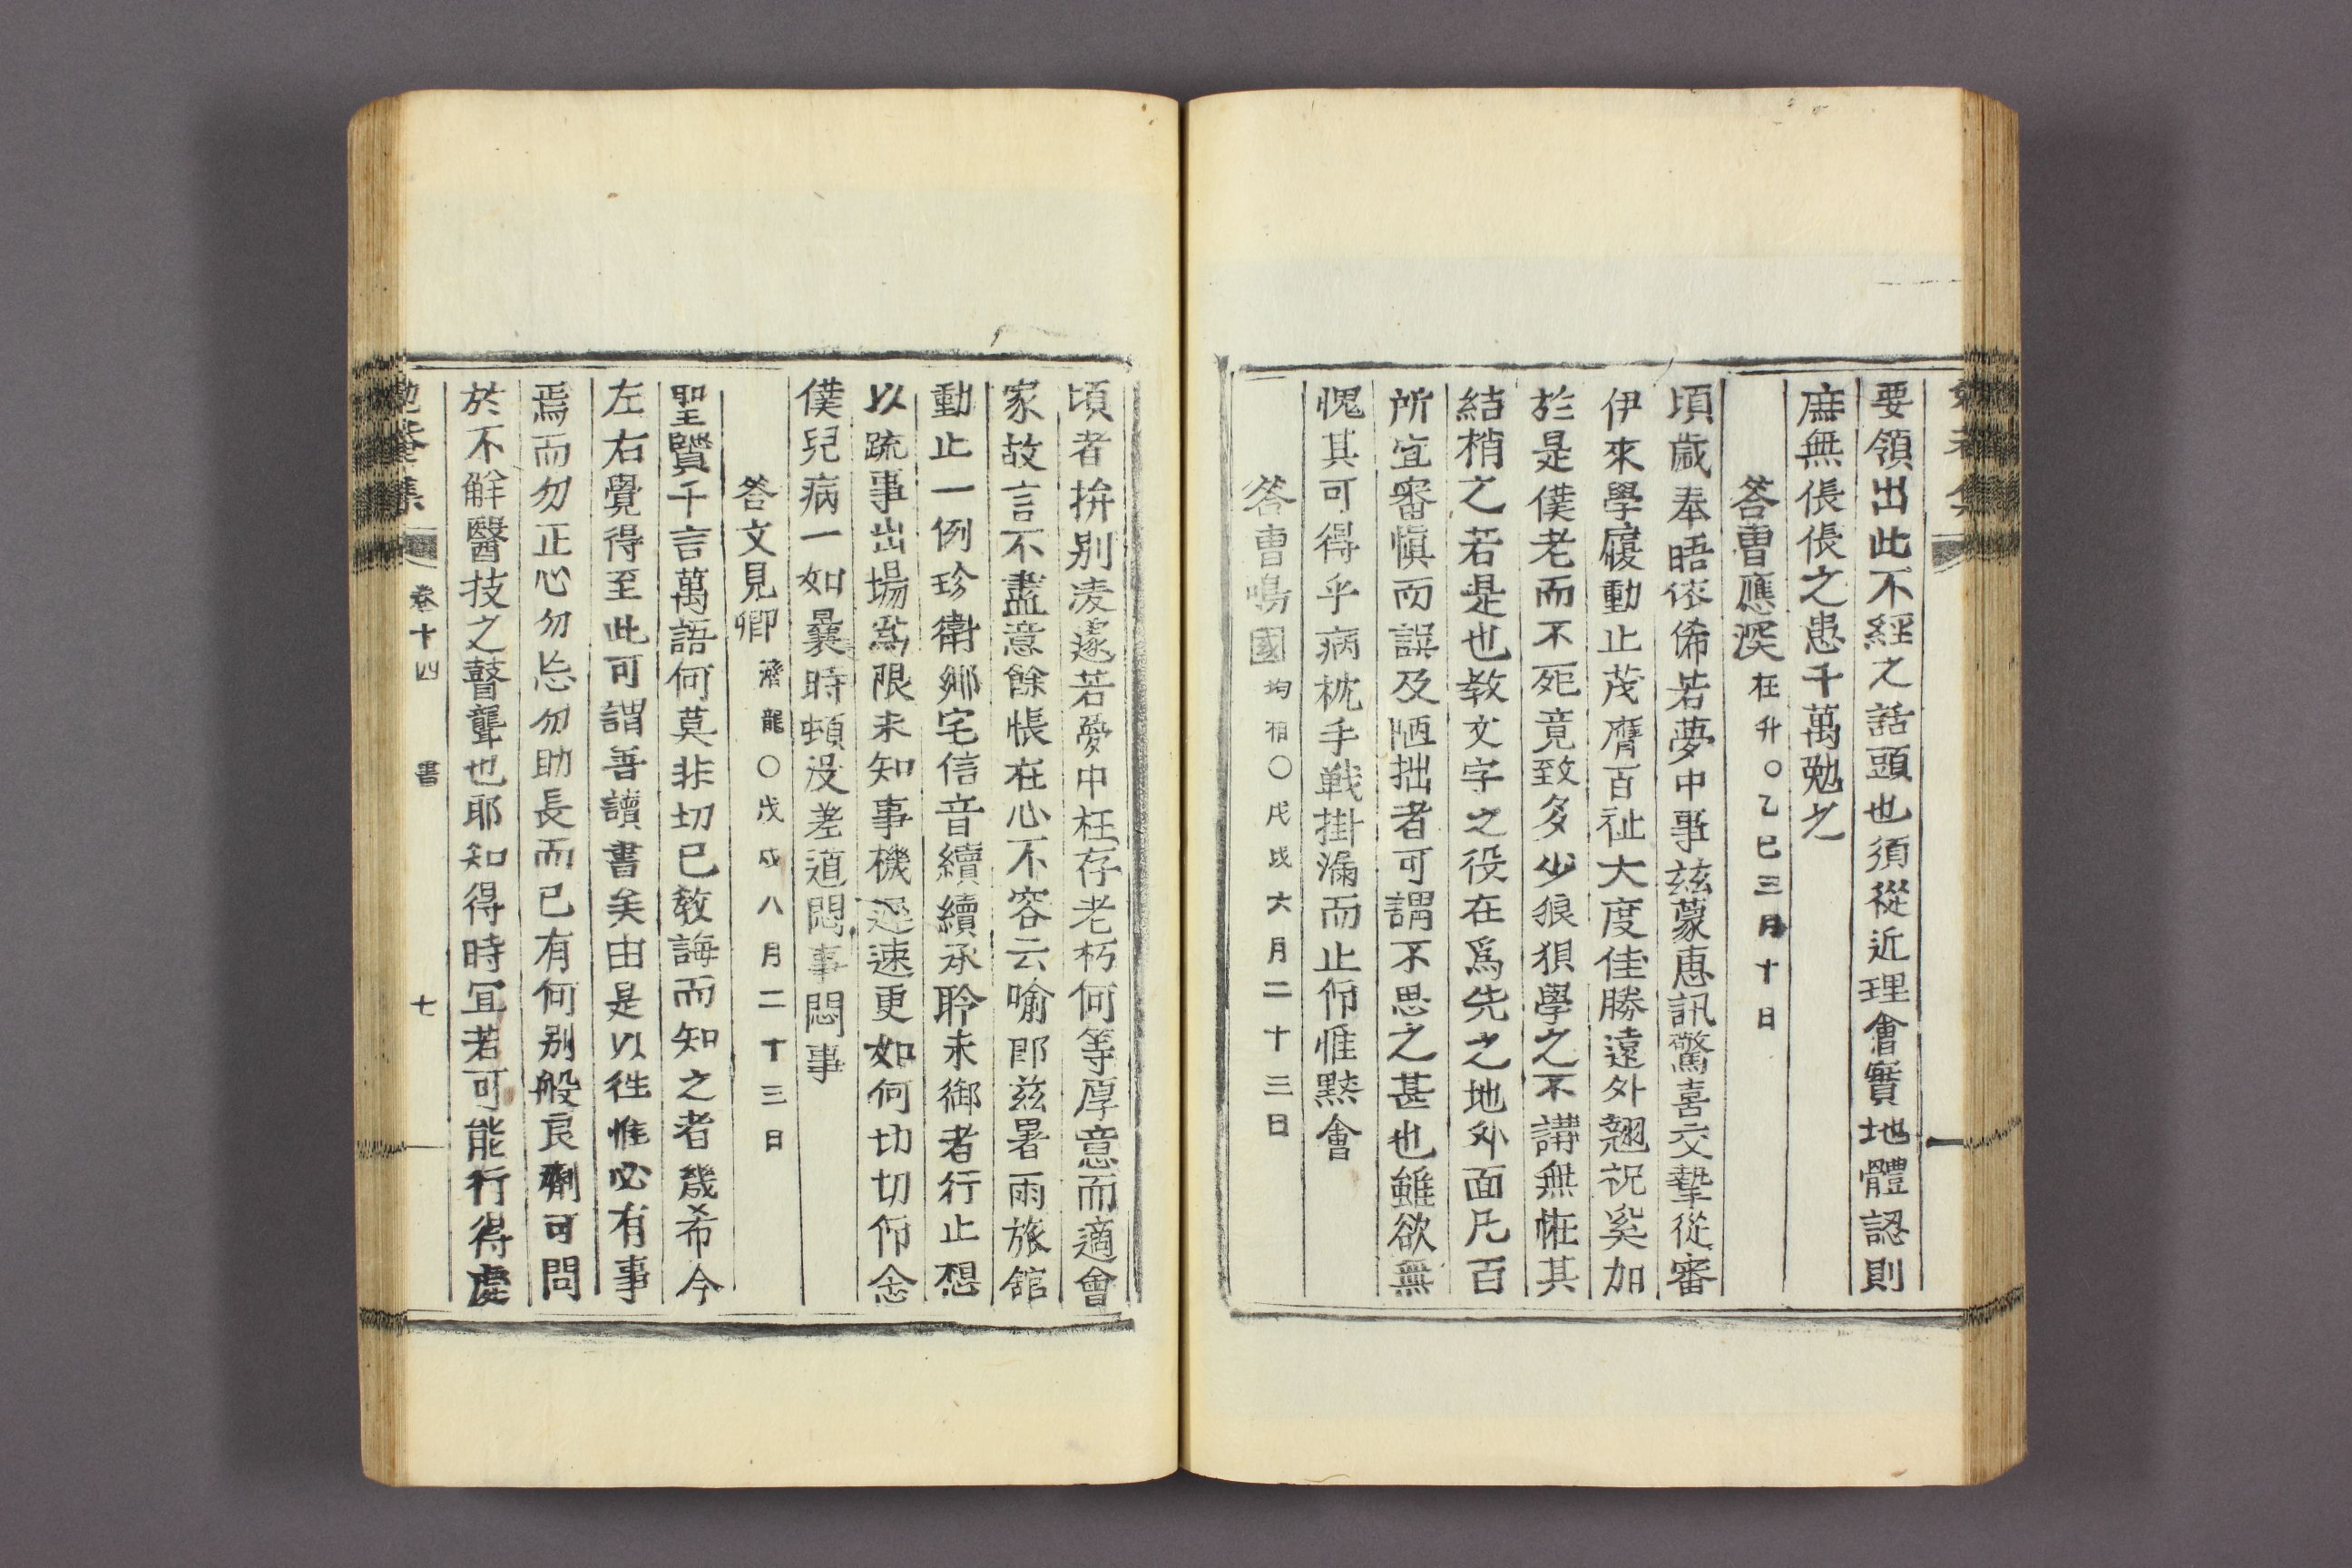 要領出此不經之話頭也須從近理會實地體認則
庶無倀倀之患千萬勉之
答曹應深在升○乙巳三月十日
頃歲奉晤依俙若夢中事玆蒙惠訊驚喜交摯從審
伊來學履動止茂膺百祉大度佳勝遠外翹祝奚加
於是僕老而不死竟致多少狼狽學之不講無恠其
結梢之若是也教文字之役在爲先之地外面凡百
所宜審愼而誤及陋拙者可謂不思之甚也雖欲無
愧其可得乎病枕手戰掛漏而止仰惟默會
答曹鳴國均相○戊戌六月二十三日
頃者拚别凌遽若夢中枉存老朽何等厚意而適會
家故言不盡意餘悵在心不容云喻郎玆暑雨旅舘
動止一例珍衛鄉宅信音續續承聆未御者行止想
以䟽事出塲爲限未知事機遲速更如何切切仰念
僕兒病一如曩時頓没差道悶事悶事
答文見卿濟龍○戊戌八月二十三日
聖賢千言萬語何莫非切已教誨而知之者幾希今
左右覺得至此可謂善讀書矣由是以徃惟必有事
焉而勿正心勿忘勿助長而已有何别般良劑可問
於不解醫技之瞽聾也耶知得時宜若可能行得處
卷十四 書 七